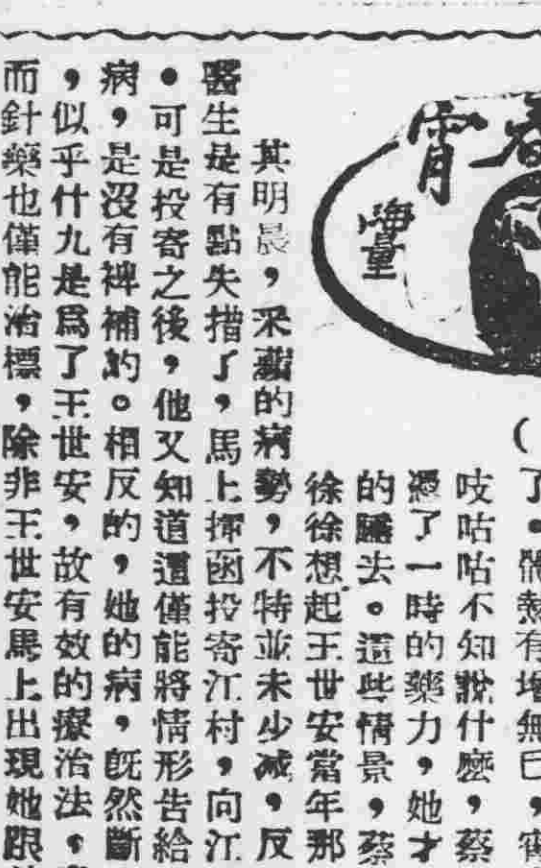 春
宵
海量
（
了。體熱有增無已，
吱咕咕不知說什麼，蔡
憑了一時的藥力，她才
的睡去。這些情景，蔡
徐徐想起王世安當年那
其明晨，采蘋的病勢，不特並未少減，反
醫生是有點失措了，馬上揮函投寄江村，向江
。可是投寄之後，他又知道這僅能將情形告給
病，是沒有裨補的。相反的，她的病，旣然斷
，似乎什九是爲了王世安，故有效的療治法，
而針藥也僅能治標，除非王世安馬上出現她跟